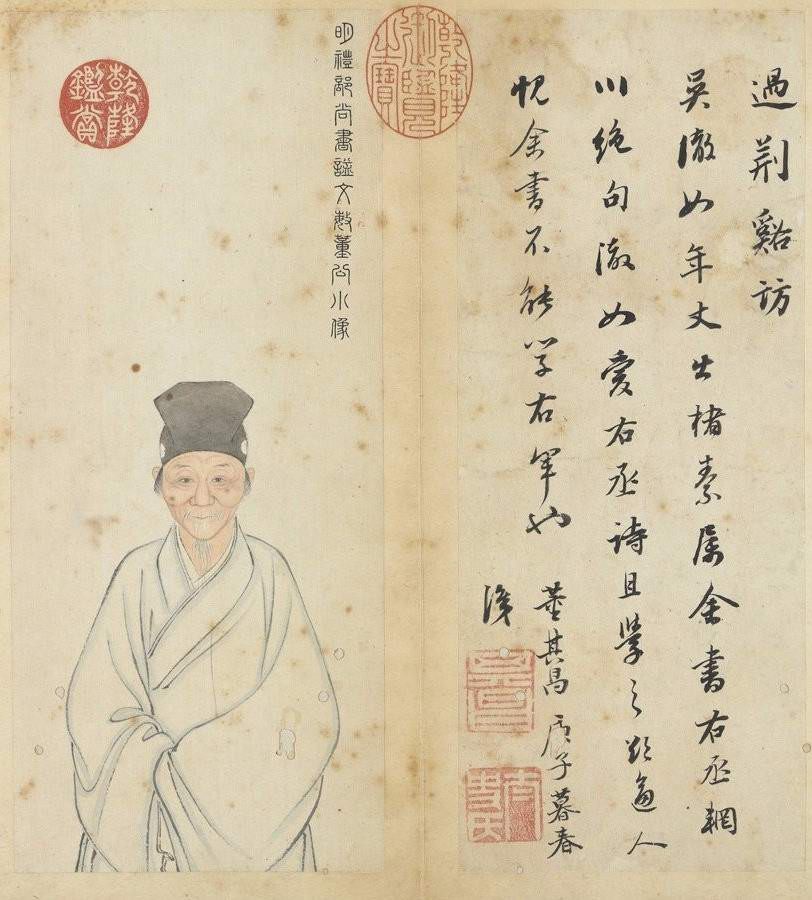 過荆谿訪
吳澈如年丈出楮素屬余書右丞輞
川絕句澈如愛右丞詩且學之逼人
余書不能学右軍也
董其昌 庚子暮春
識
乾隆御覽之寶
明禮部尚書謚文敏董公小像
乾隆鑑賞